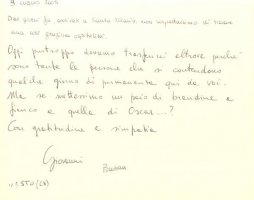 9 MARZO 2005
Due giorni fa arrivavo a Santa Chiara, non aspettandomi di trovare
una così graziosa ospitalità.
Oggi purtroppo dovremo trasferirci altrove perché
sono tante le persone che si contendono
qualche giorno di permanenza qui da voi.
Ma se mettessimo un paio di brandine a
fianco a quella di Oscar...?
Con gratitudine e simpatia
Giovanni